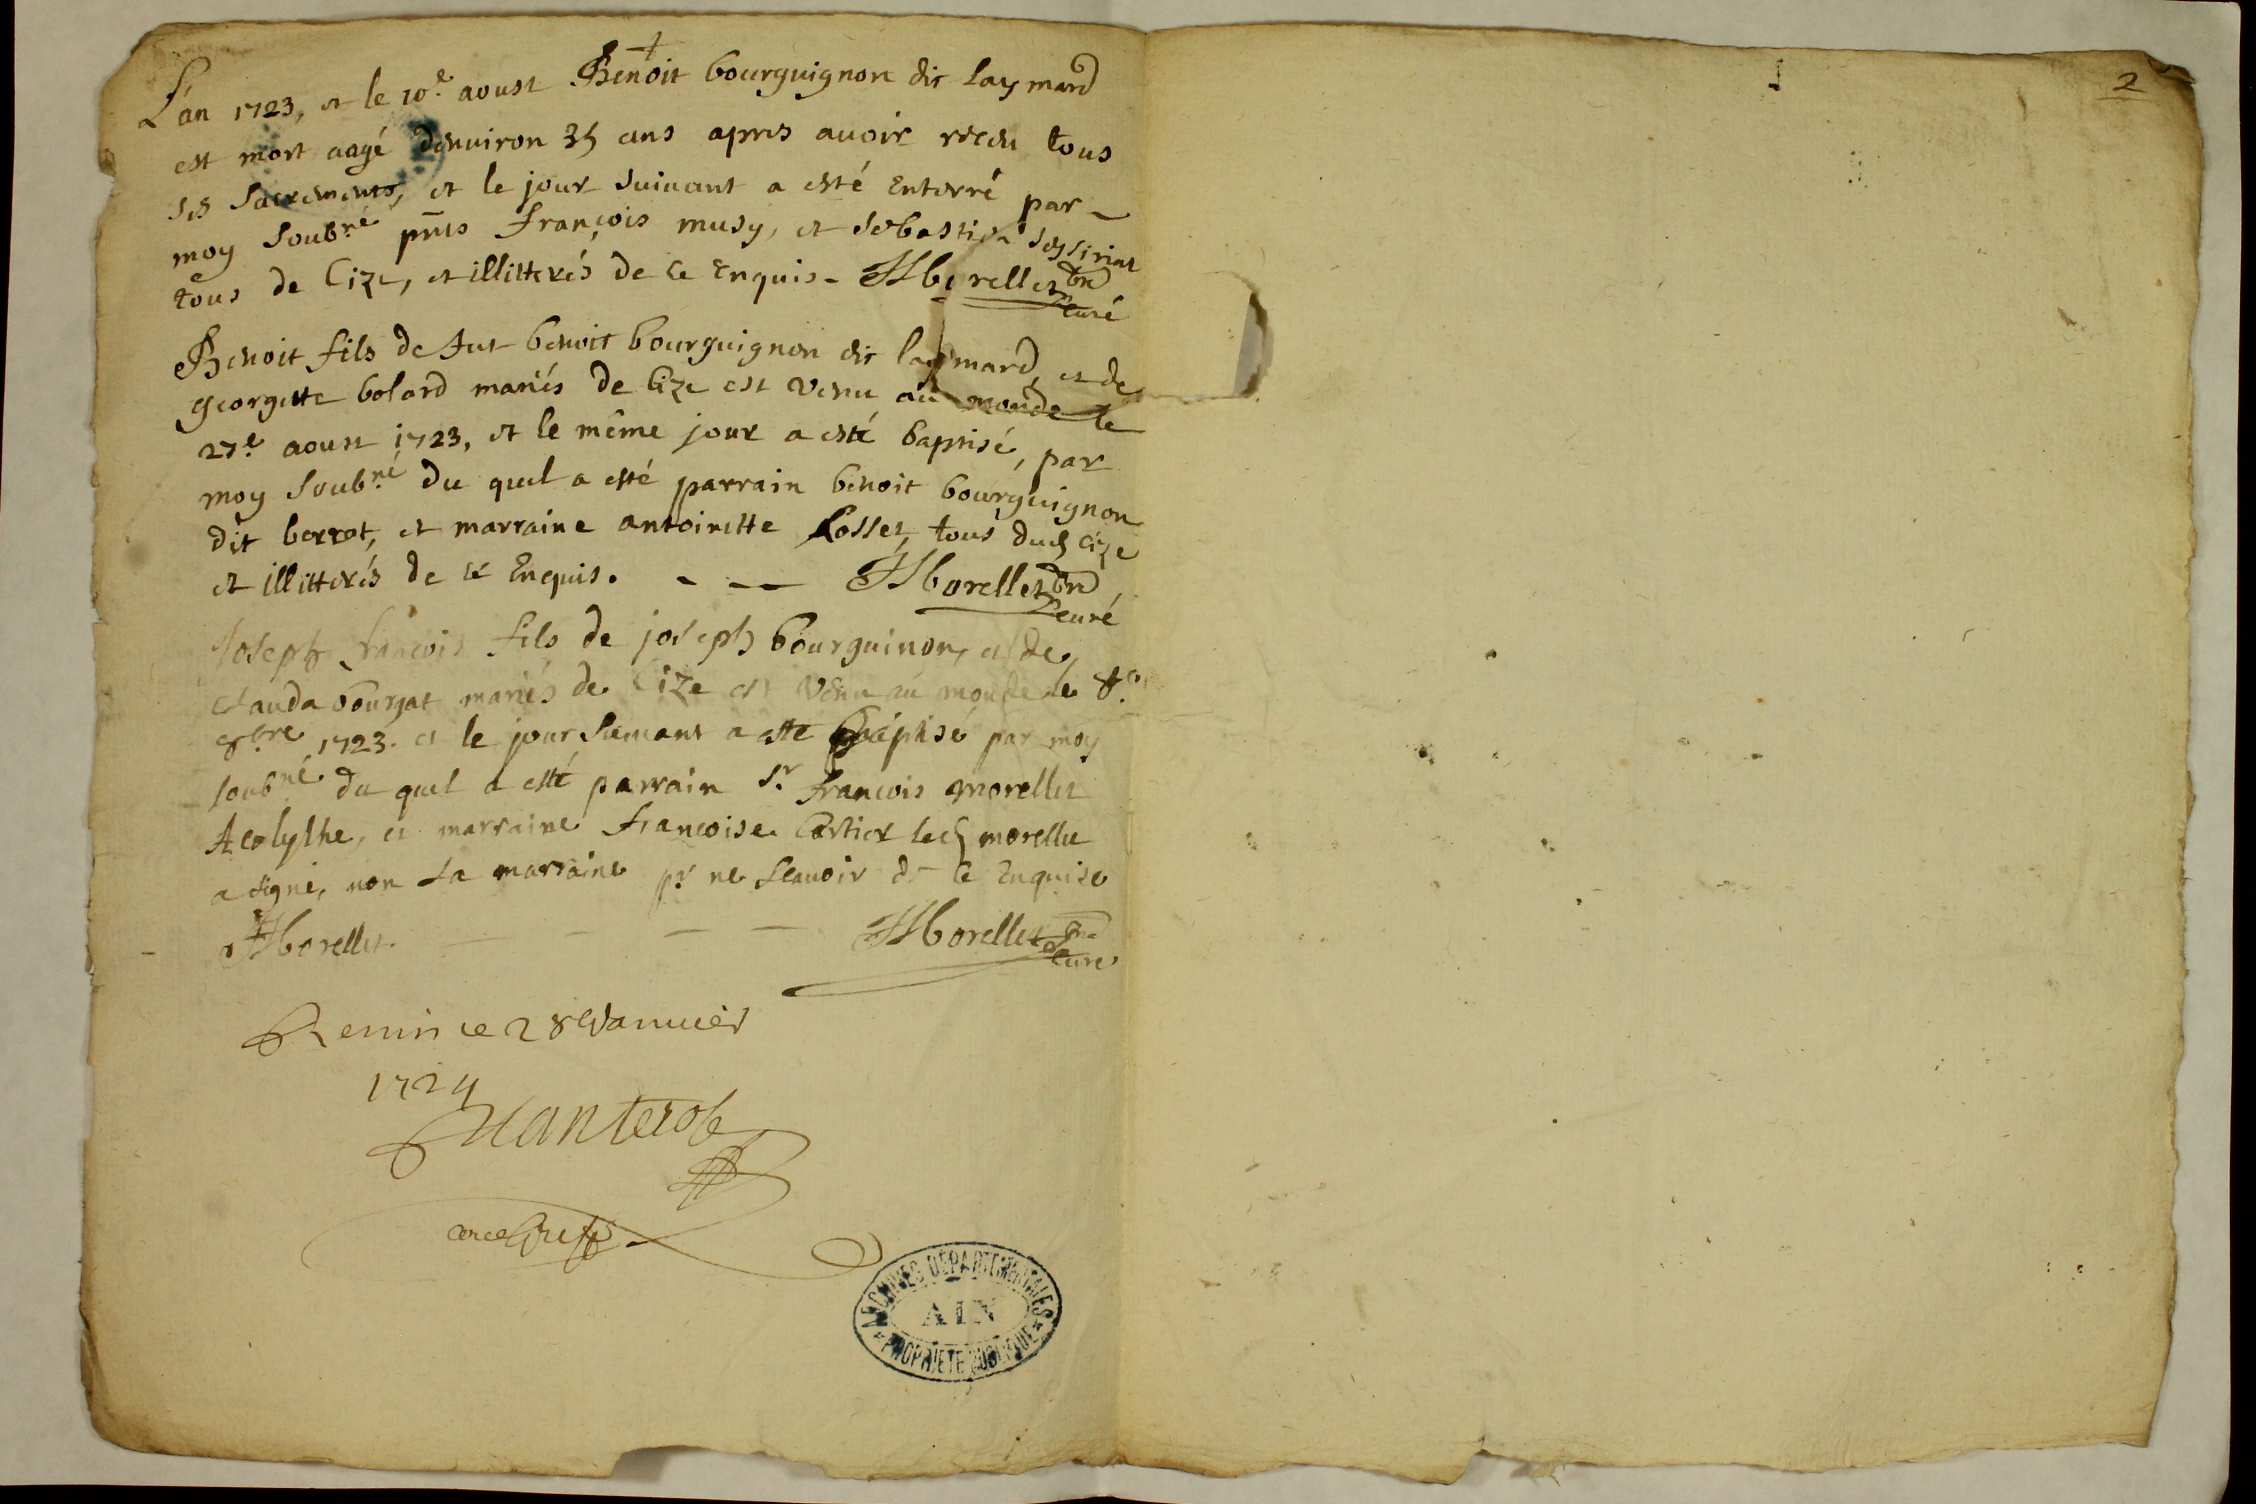 2
L'an 1723, et le 10e aoust Benoit bourguignon dit laymard
est mort aagé d'enuiron 35 ans apres auoir receu tous
ses sacrements, et le jour suiuant a esté enterré par
moy soubné pnts françois musy, et sebastien
tous de Cize, et illitterés de ce enquis - Morellet
curé
Benoit fils de fut benoit bourguignon dit laymard, et de
georgette bolard mariés de Cize est venu au monde le
27e aoust 1723, et le même jour a esté baptisé, par
moy soubné du quel a esté parrain benoit bourguignon
dit berrot, et marraine antoinette Rosset, tous dud Cize
et illitterés de ce enquis. - - Morellet
curé
Joseph françois fils de joseph bourguinon, et de
clauda bourjat mariés de Cize est venu au monde le 8e
8bre 1723. et le jour suiuant a esté baptisé par moy
soubné du quel a esté parrain sr françois morellet
Acolythe, et marraine françoise Cartier led morellet
a signé, non la marraine pr ne scauoir de ce enquise
Morellet. - - - Morellet
curé
Remis ce 28 Januier
1724
ARCHIVES DÉPARTEMENTALES
AIN
PROPRIÉTÉ PUBLIQUE